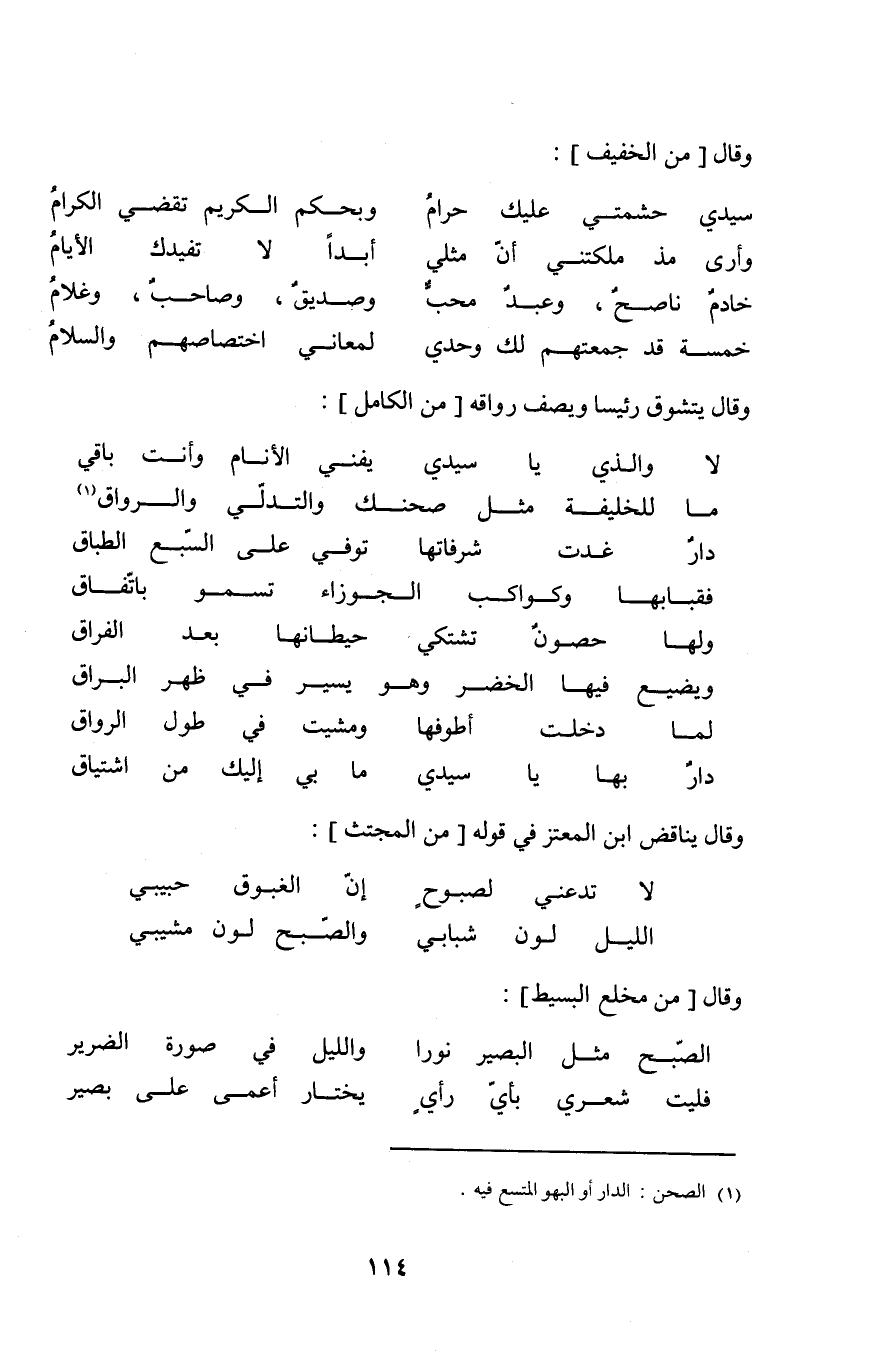 وقال [ من الخفيف ] :
سيدي حشمتـــي عليك حرامُ وبحــكم الــكريم تقضــي الكرامُ
وأرى مذ ملكتنــي أنّ مثلي أبــداً لا تفيدك الأيامُ
خادمٌ ناصــحٌ ، وعبــدٌ محبٌّ وصــديقٌ ، وصاحــبٌ ، وغلامُ
خمســة قد جمعتهــم لك وحدي لمعانــي اختصاصهــم والسلامُ
وقال يتشوق رئيسا ويصف رواقه [ من الكامل ] :
لا والــذي يا سيدي يفنــي الأنــام وأنــت باقي
مــا للخليفــة مثــل صحنــك والتــدلّــي والــرواق(١)
دارٌ غدت شرفاتها توفي علــى السّبع الطباق
فقبــابهــا وكــواكب الــجــوزاء تسمــو باتّفــاق
ولهــا حصونٌ تشتكي حيطــانهــا بعد الفراق
ويضيــع فيهــا الخضــر وهــو يسيــر فــي ظهر البــراق
لمــا دخلت أطوفها ومشيت في طول الرواق
دارٌ بهــا يا سيدي ما بي إليك من اشتياق
وقال يناقض ابن المعتز في قوله [ من المجتث ] :
لا تدعني لصبوحٍ إنّ الغبوق حبيبي
الليــل لون شبابي والصّبــح لون مشيبي
وقال [ من مخلع البسيط] :
الصّبــح مثــل البصير نورا والليل في صورة الضرير
فليت شعــري بأيّ رأيٍ يختــار أعمــى علــى بصير
(١) الصحن : الدار أو البهو المتسع فيه .
١١٤